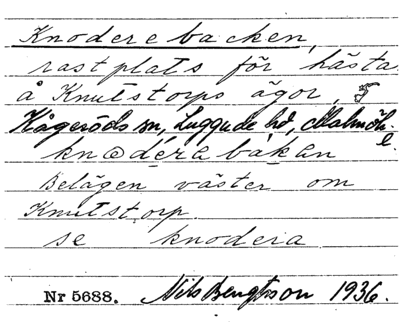 Knoderebacken,
rastplats för hästa
å Knutstorps ägor,
Kågeröds sn, Luggude hd, Malmöh. l.
knɷderabakan
Belägen väster om
Knutstorp
se knodera
Nr 5688. Nils Bengtsson 1936.